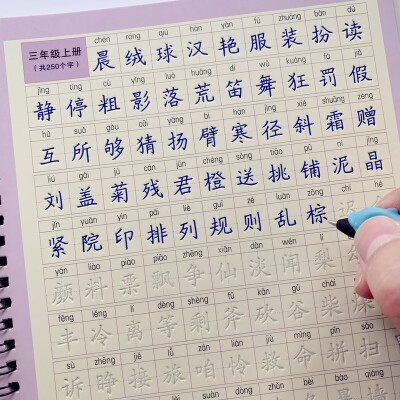 三年级上册
(共250个字)
chén róng qiú hàn yàn fú zhuāng bàn dú
晨 绒 球 汉 艳 服 装 扮 读
jìng tíng cū yǐng luò huāng dí wǔ kuáng fá jià
静 停 粗 影 落 荒 笛 舞 狂 罚 假
hù suǒ gòu cāi yáng bì hán jìng xié shuāng zèng
互 所 够 猜 扬 臂 寒 径 斜 霜 赠
liú gài jú cán jūn chéng sòng tiǎo pù ní jīng
刘 盖 菊 残 君 橙 送 挑 铺 泥 晶
jǐn yuàn yìn pái liè guī zé luàn zōng chí hé
紧 院 印 排 列 规 则 乱 棕
yán liào piào piāo zhēng xiān dàn wén lí
颜 料 票 飘 争 仙 淡 闻 梨 勾
fēng lěng lí děng shèng fǔ kǎn gǔ chái
丰 冷 离 等 剩 斧 砍 谷 柴 煤
sù zhēng jiē lǚ zán lián jiù mìng pīn sǎo
诉 睁 接 旅 咱 怜 救 命 拼 扫